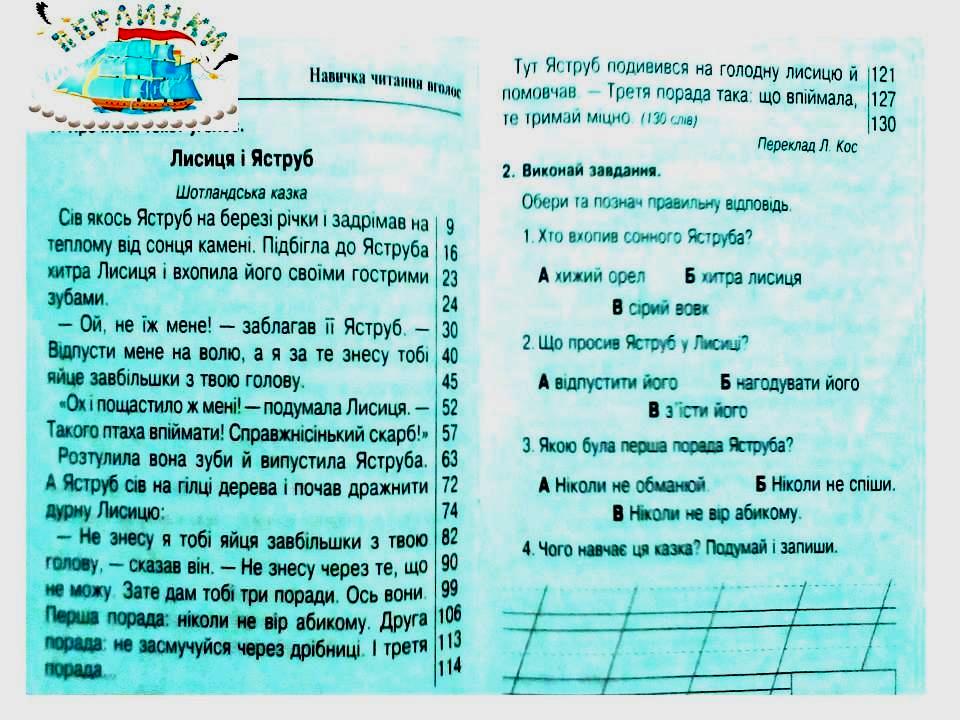 ПЕРЛИНКИ
Навичка читання вголос
Лисиця і Яструб
Шотландська казка
Сів якось Яструб на березі річки і задрімав на 9
теплому від сонця камені. Підбігла до Яструба 16
хитра Лисиця і вхопила його своїми гострими 23
зубами. 24
— Ой, не їж мене! — заблагав її Яструб. — 30
Відпусти мене на волю, а я за те знесу тобі 40
яйце завбільшки з твою голову. 45
«Ох і пощастило ж мені! — подумала Лисиця. — 52
Такого птаха впіймати! Справжнісінький скарб!» 57
Розтулила вона зуби й випустила Яструба. 63
А Яструб сів на гілці дерева і почав дражнити 72
дурну Лисицю: 74
— Не знесу я тобі яйця завбільшки з твою 82
голову, — сказав він. — Не знесу через те, що 90
не можу. Зате дам тобі три поради. Ось вони. 99
Перша порада: ніколи не вір абикому. Друга 106
порада: не засмучуйся через дрібниці. І третя 113
порада... 114
Тут Яструб подивився на голодну лисицю й 121
помовчав. — Третя порада така: що впіймала, 127
те тримай міцно. (130 слів) 130
Переклад Л. Кос
2. Виконай завдання.
Обери та познач правильну відповідь.
1. Хто вхопив сонного Яструба?
А хижий орел Б хитра лисиця
В сірий вовк
2. Що просив Яструб у Лисиці?
А відпустити його Б нагодувати його
В з'їсти його
3. Якою була перша порада Яструба?
А Ніколи не обманюй. Б Ніколи не спіши.
В Ніколи не вір абикому.
4. Чого навчає ця казка? Подумай і запиши.